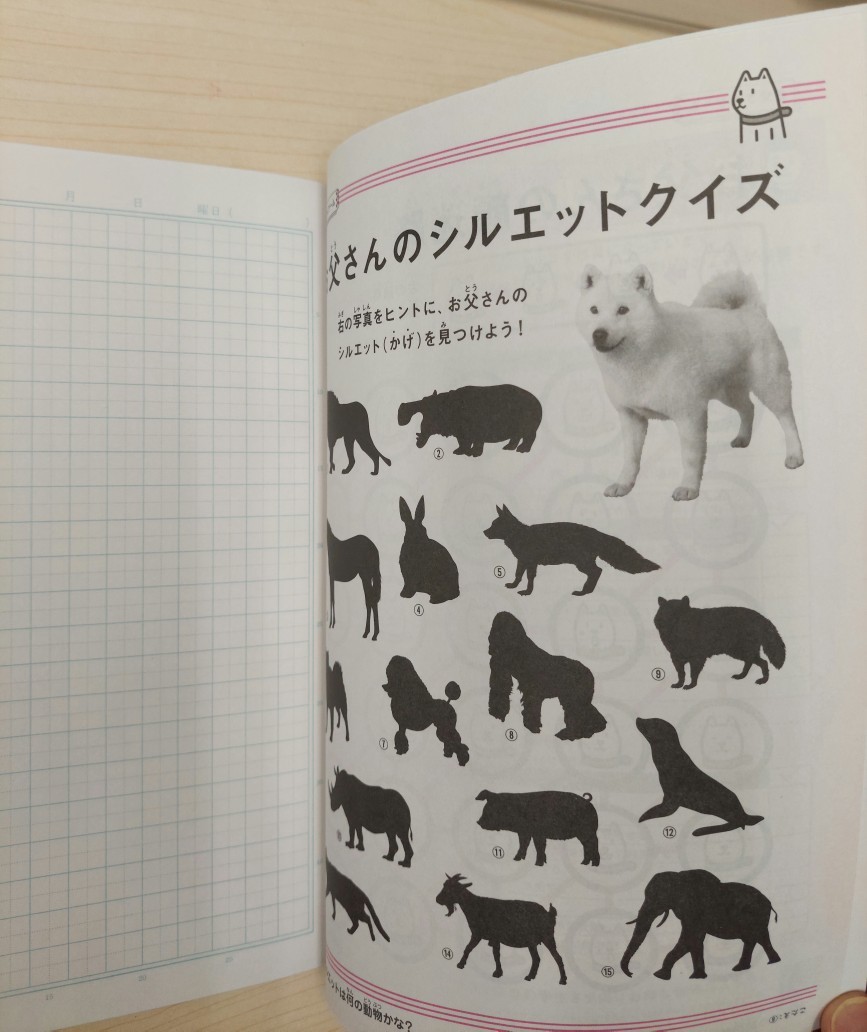 月 日 曜日
父さんのシルエットクイズ
右の写真をヒントに、お父さんの
シルエット(かげ)を見つけよう!
②
④
⑤
⑦
⑧
⑨
⑪
⑫
⑭
⑮
エットは何の動物かな?